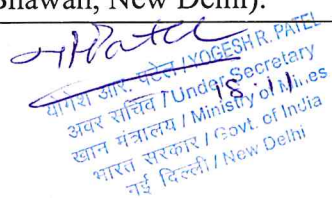 Bhawan, New Delhi).
योगेश आर. पटेल / YOGESH R. PATEL
अवर सचिव / Under Secretary
18.11
खान मंत्रालय / Ministry of Mines
भारत सरकार / Govt. of India
नई दिल्ली / New Delhi